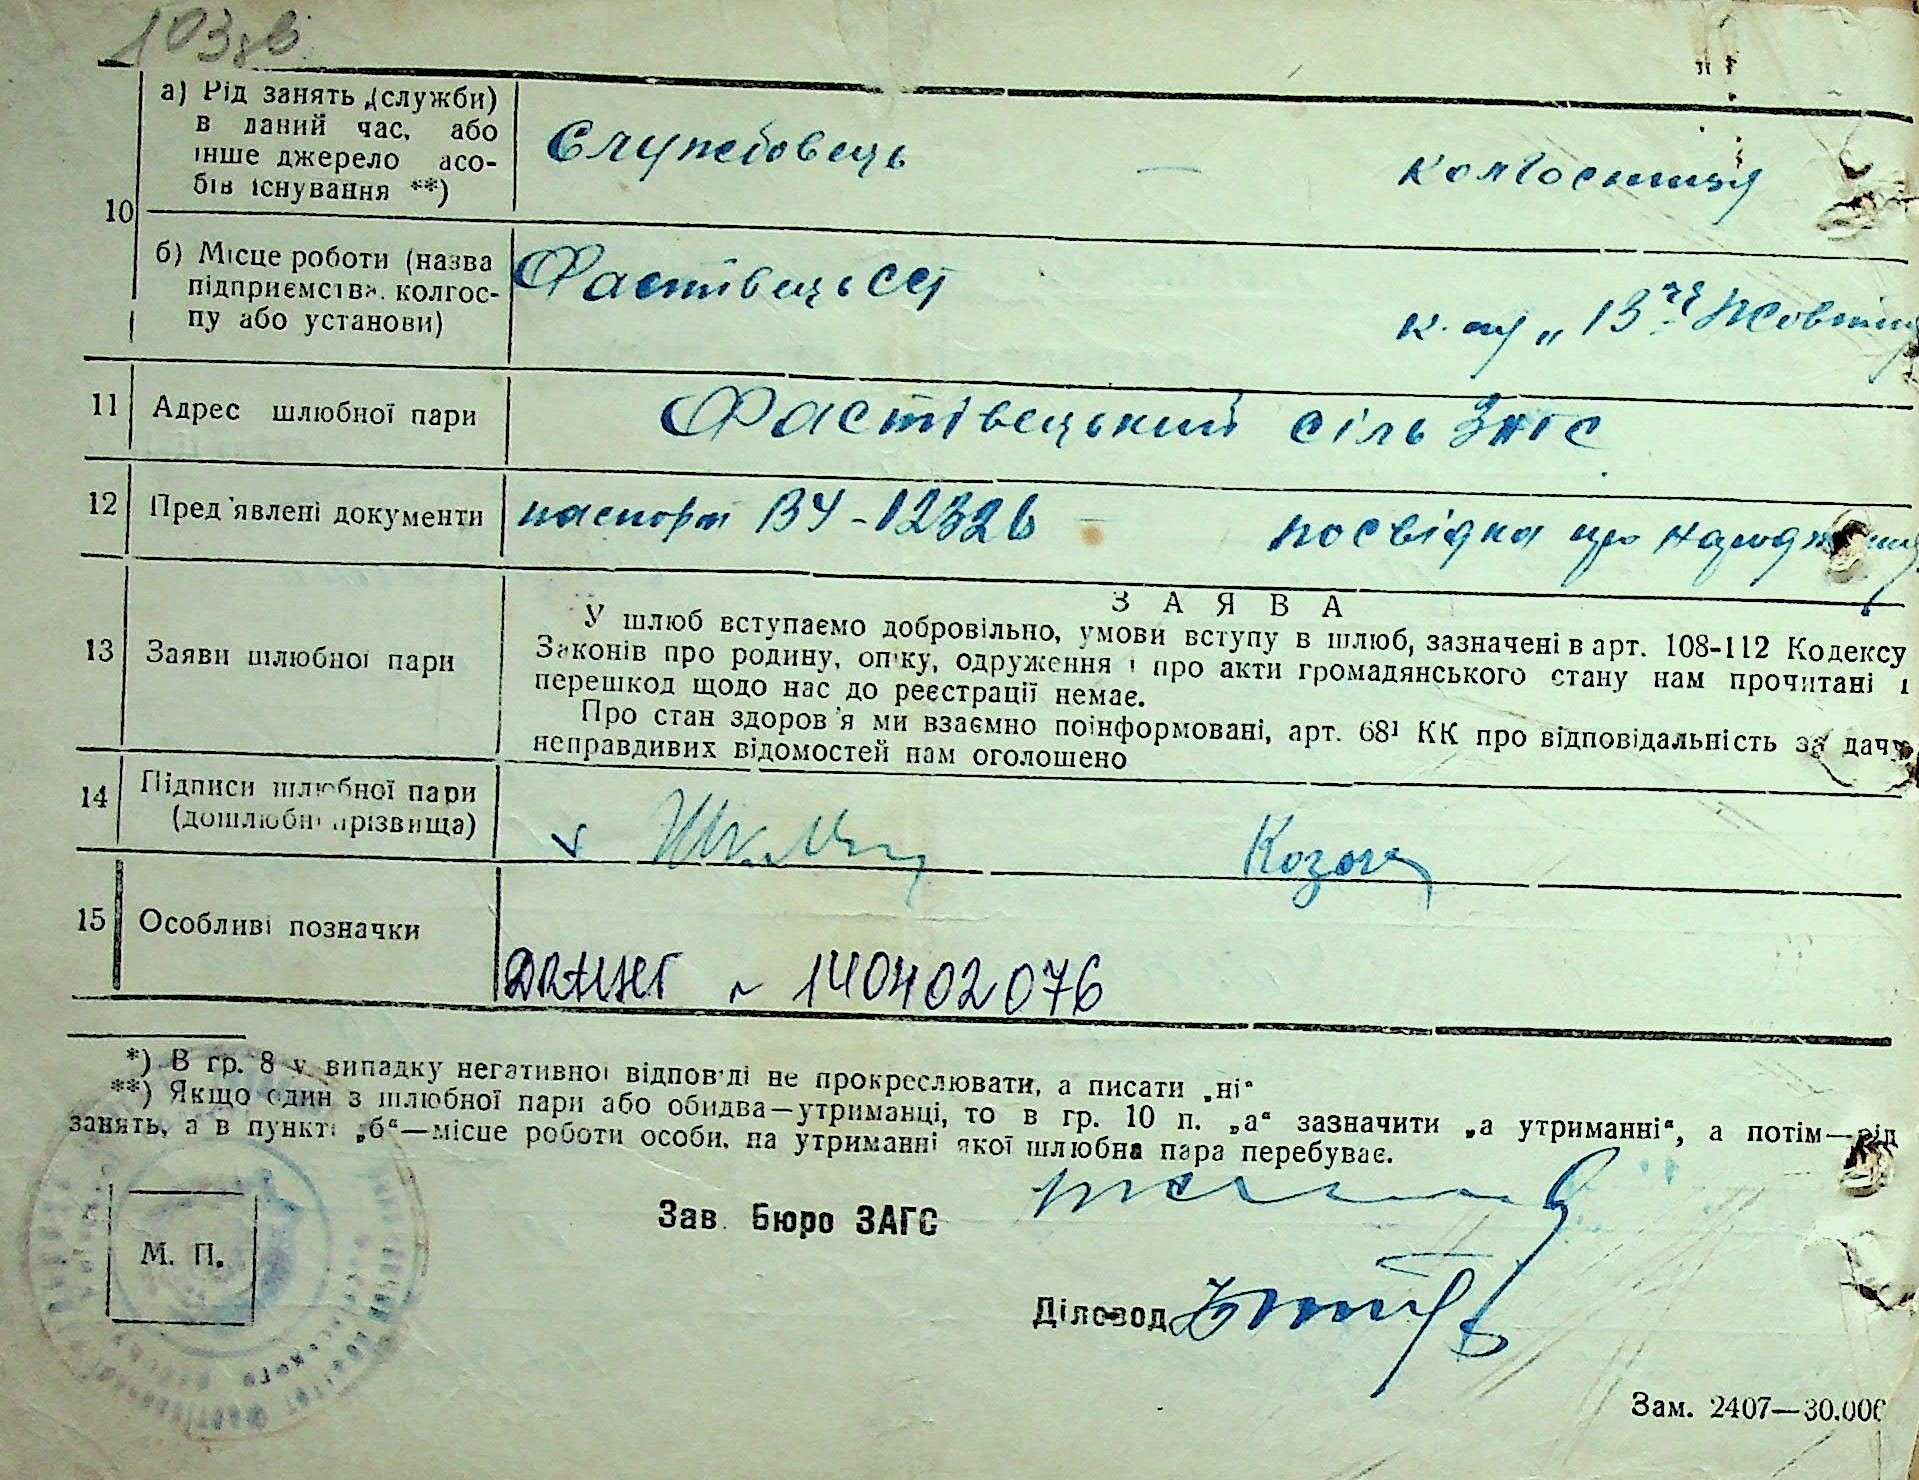 103 зв
10
а) Рід занять (служби)
в даний час, або
інше джерело асо-
бів існування **)
Службовець — колгоспниця
б) Місце роботи (назва
підприємства, колгос-
пу або установи)
Фастівець
11 Адрес шлюбної пари Фастівецький сіль ЗАГС
12 Пред'явлені документи паспорт ВУ - 12326 - посвідка про народження
З А Я В А
13 Заяви шлюбної пари
У шлюб вступаємо добровільно, умови вступу в шлюб, зазначені в арт. 108-112 Кодексу
Законів про родину, опіку, одруження і про акти громадянського стану нам прочитані і
перешкод щодо нас до реєстрації немає.
Про стан здоров'я ми взаємно поінформовані, арт. 68¹ КК про відповідальність за дачу
неправдивих відомостей нам оголошено
14 Підписи шлюбної пари
(дошлюбні прізвища)
15 Особливі позначки
140402076
*) В гр. 8 у випадку негативної відповіді не прокреслювати, а писати „ні“
**) Якщо один з шлюбної пари або обидва—утриманці, то в гр. 10 п. „а“ зазначити „а утриманні“, а потім—рід
занять, а в пункті „б“—місце роботи особи, на утриманні якої шлюбна пара перебуває.
Зав. Бюро ЗАГС
М. П.
Діловод
Зам. 2407—30.000